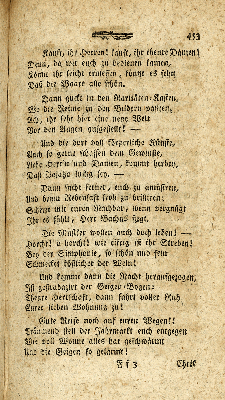 453
Kauft, ihr Herren! kauft, ihr theure Damen!
Denn, da wir euch zu bedienen kamen,
Könnt ihr leicht ermessen, könnt es sehn
Daß die Waare alle schön.
Dann guckt in den Raritäten-Kasten,
Wo die Reime zu den Bildern paßten,
Ah, ihr seht hier eine neue Welt
Vor den Augen aufgestellt! —
Und die dort voll Bayerische Künste,
Auch so gerne schaffen dem Gewinnste,
Liebe Herrn und Damen, kommt herbey,
Daß Bajazzo lustig sey. —
Dann sucht ferner, euch zu amüsiren,
Und beym Rebensaft froh zu
Scherzt mit eurem Nachbar, wenn vergnügt
Ihr es fühlt, Herr Bachus siegt.
Die Musiker wollen auch doch leben! —
Horcht! o horcht! wie eifrig ist ihr Streben!
Bey der Simphonie, so schön und fein
Schmecket köstlicher der Wein!
Und kommt dann die Nacht herangezogen,
Ist gestrudelt der Geiger-Bogen:
Theure Herrschaft, dann fahrt voller Ruh
Eurer lieben Wohnung zu!
Gute Reise noch auf euren Wegen!
Träumend stell der Jahrmarkt euch entgegen
Wie voll Wonne alles hat geschwärmt
Und die Geigen so gelärmt!
F f 3
Chris